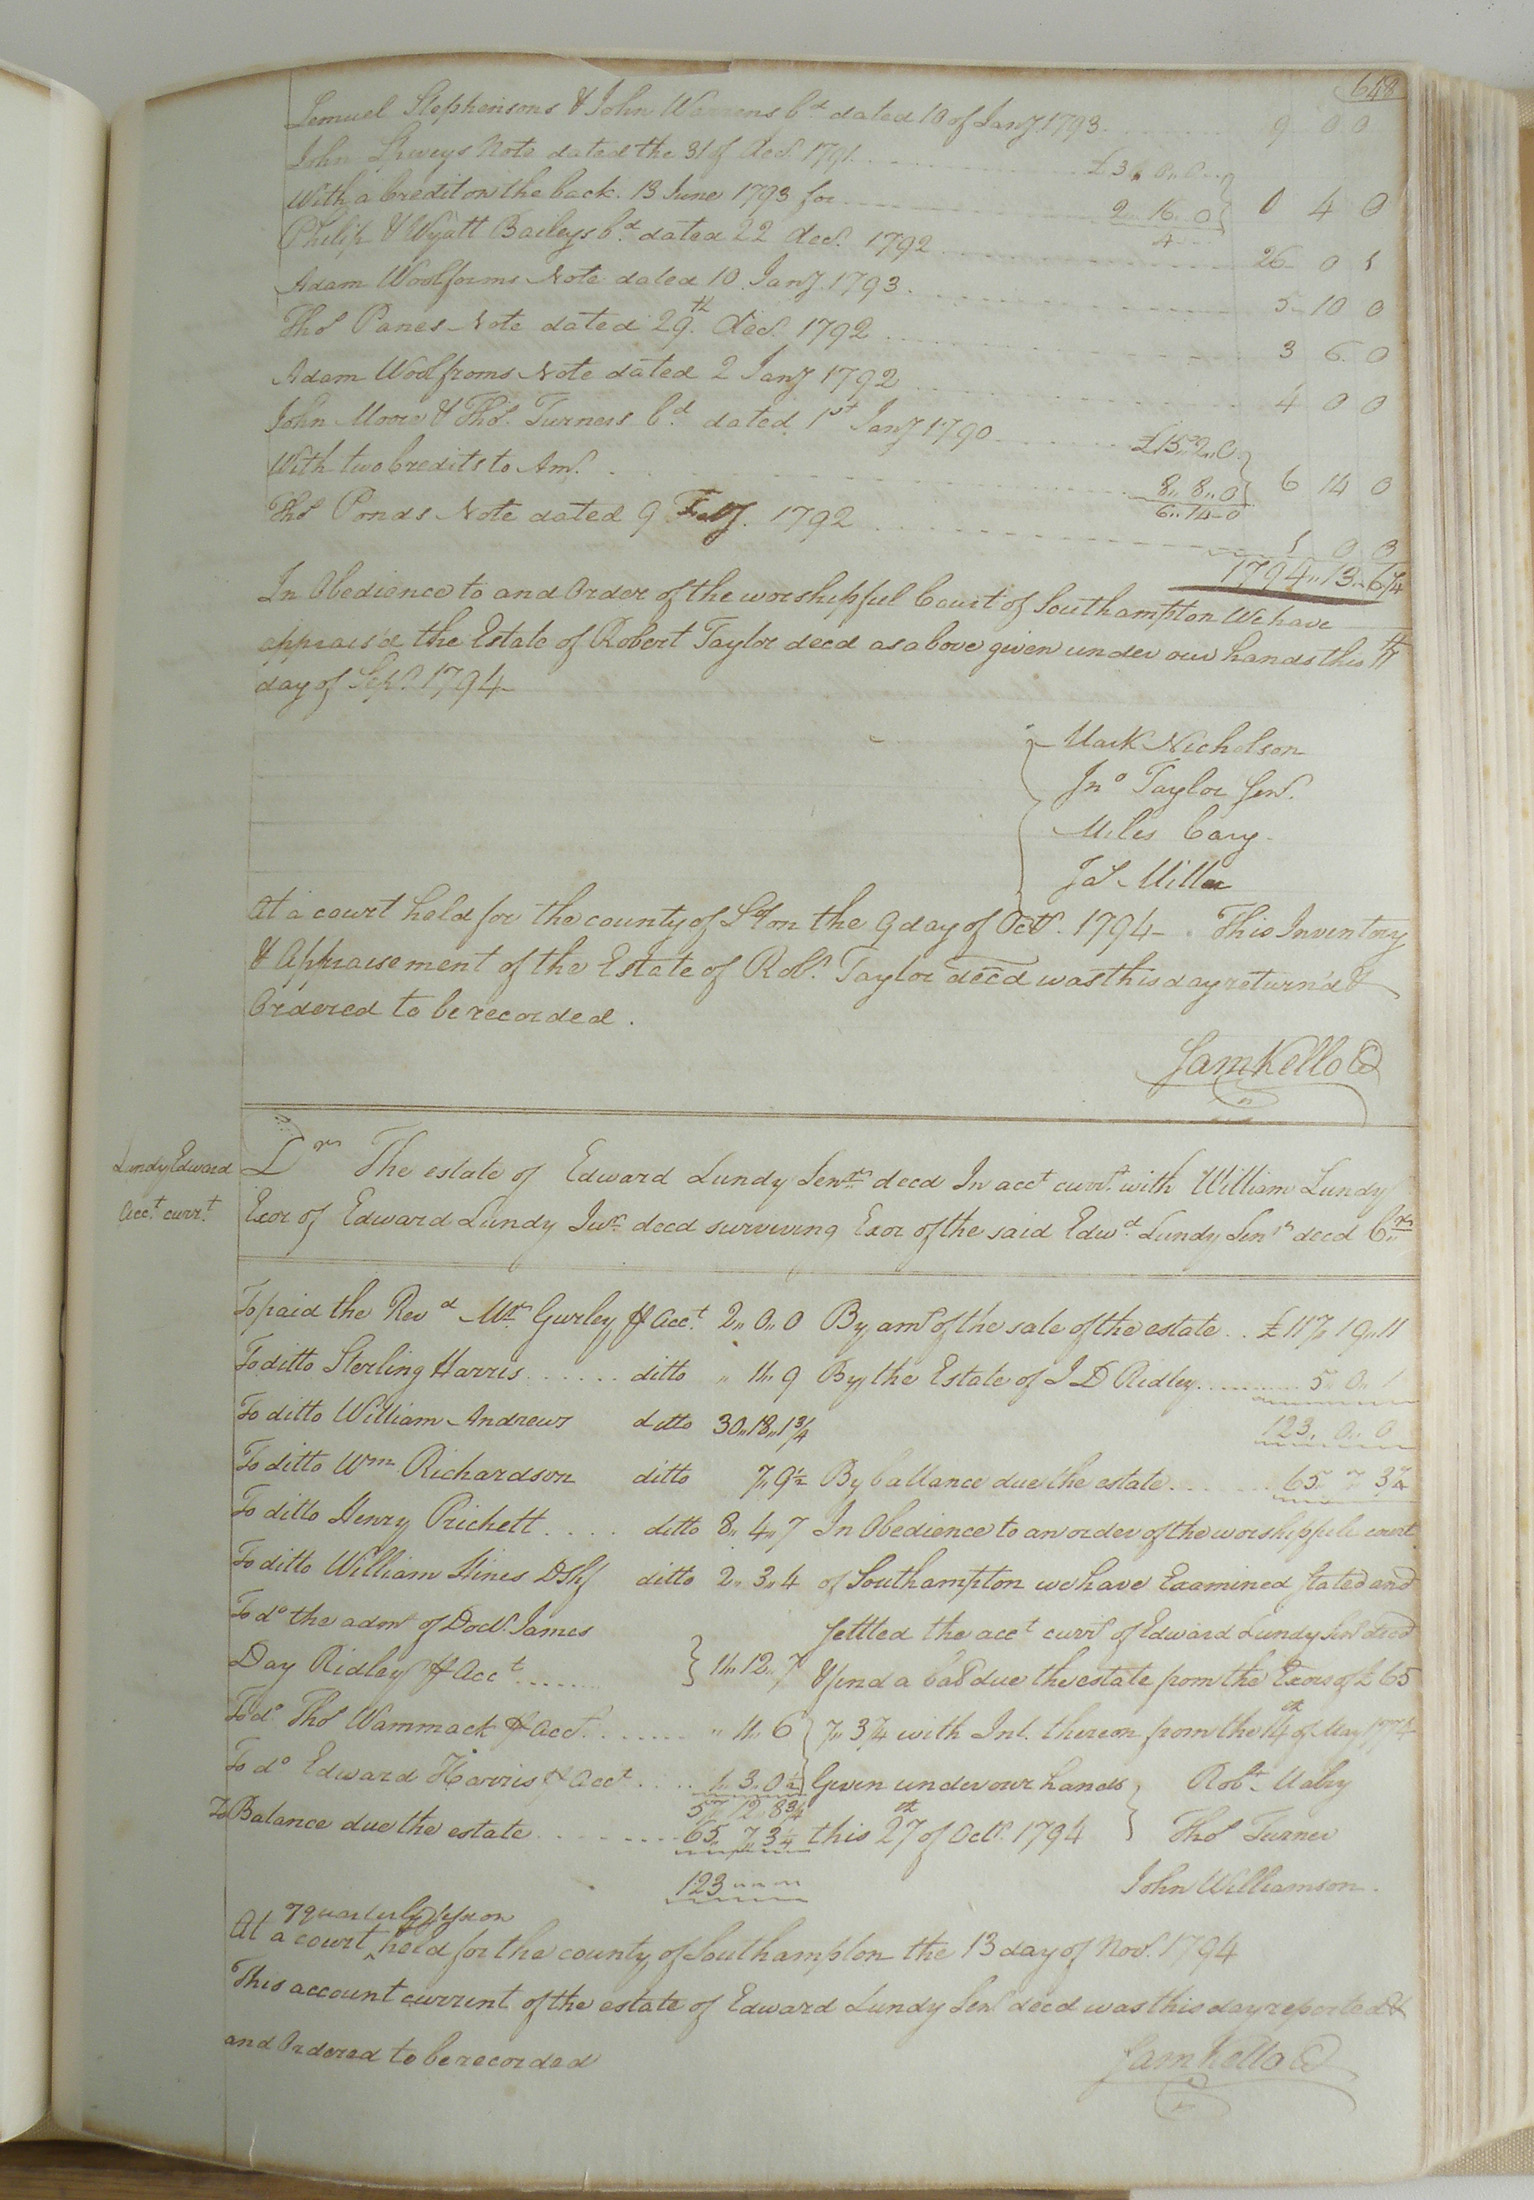 648
Lemuel Stephensons & John Warrens bd dated 10 of Jany 1793 9 0 0
John Note dated the 31 of Decr. 1791 £3,, 0,, 0
With a Credit on the back. 13 June 1793 for 2 16 0 } 0 4 0
4
Philip & Wyatt Baileys bd. dated 22 Decr. 1792 26 0 1
Adam Woolfroms Note dated 10 Jany 1793 5 10 0
Thos Panes Note dated 29th. Decr. 1792 3 6 0
Adam Woolfroms Note dated 2 Jany 1792 4 0 0
John Moore & Thos. Turners bd dated 1st Jany 1790 £15,, 2,, 0
With two Credits to Amt. 8,, 8,, 0 } 6 14 0
6,, 14 - 0
Thos Ponds Note dated 9 Feby. 1792 1 0 3
1794,, 13 - 6 3/4
In Obedience to and Order of the worshipful Court of Southampton We have
appraisd the Estate of Robert Taylor decd as above given under our hands this
day of Sepr. 1794
Mark Nicholson
Jno Taylor Senr.
Miles Cary
Jas Miller
At a court held for the county of Soton the 9 day of Octr. 1794 - This Inventory
& Appraisement of the Estate of Robt. Taylor decd was this day return'd &
Ordered to be recorded.
Sam Kello C
Lundy Edward
Acct. currt.
Dr The estate of Edward Lundy Senr decd In acct currt. with William Lundy
Exor of Edward Lundy Junr decd surviving Exor of the said Edwd Lundy Senr decd Cr
To paid the Revd Mr Gurley pr Acct. 2,, 0,, 0 By amt of the sale of the estate £117,, 19,, 11
To ditto Sterling Harris ditto ,, 11,, 9 By the Estate of J D Ridley 5,, 0,, 1
To ditto William Andrews ditto 30,, 18,, 1 3/4 123,, 0,, 0
To ditto Wm Richardson ditto 7,, 9 1/2 By ballance due the estate 65 7 3 1/4
To ditto Henry Prichett ditto 8,, 4,, 7 In Obedience to an order of the worshipfull court
To ditto William Hines DShf ditto 2,, 3,, 4 of Southampton we have Examined Stated and
To do the admr of Doctr. James Settled the acct currt of Edward Lundy Senr decd
Day Ridley pr Acct } 11,, 12,, 7 & find a bale due the estate from the Exors of £65
To do. Thos Wammack pr Acct. ,, 11,, 6 7,, 3 1/4 with Int. thereon from the 14th of May 1774
To do Edward Harris pr Acct 1,, 3,, 0 1/2 Given under our hands Robt. Mabry
57 12 8 3/4
To Balance due the estate 65 7 3 1/4 this 27th of Octr. 1794 Thos Turner
123 John Williamson.
quarterly Session
At a court held for the county of Southampton the 13 day of Novr. 1794
This account current of the estate of Edward Lundy Senr decd was this day reported &
and Ordered to be recorded
Sam Kello C